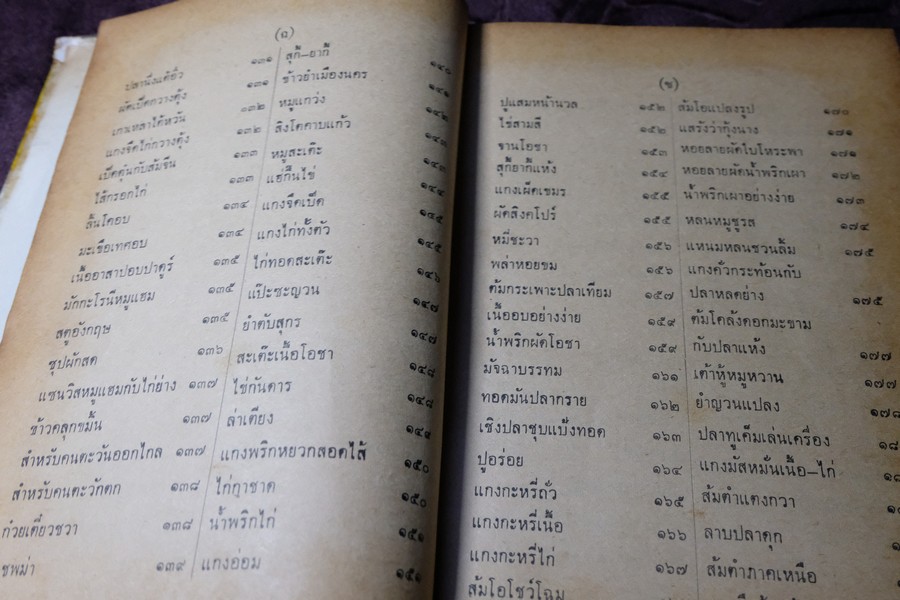 (ฉ)
ปลานึ่งแต้จิ๋ว ๑๓๑
ผัดเป็ดกวางตุ้ง ๑๓๑
เกาเหลาไต้หวัน ๑๓๒
แกงจืดไก่กวางตุ้ง ๑๓๒
เป็ดตุ๋นกับส้มจีน ๑๓๓
ไส้กรอกไก่ ๑๓๓
ลิ้นโคอบ ๑๓๔
มะเขือเทศอบ ๑๓๔
เนื้ออาสาปอบปาตูร์ ๑๓๕
มักกะโรนีหมูแฮม ๑๓๕
สตูอังกฤษ ๑๓๕
ซุปผักสด ๑๓๖
แซนวิสหมูแฮมกับไก่ย่าง ๑๓๗
ข้าวคลุกขมิ้น ๑๓๗
สำหรับคนตะวันออกไกล ๑๓๗
สำหรับคนตะวักตก ๑๓๘
ก๋วยเตี๋ยวชวา ๑๓๘
ชพม่า ๑๓๙
สุกี้–ยากี้ ๑๔๐
ข้าวยำเมืองนคร ๑๔๑
หมูแกว่ง ๑๔๒
สิงโตคาบแก้ว ๑๔๓
หมูสะเต๊ะ ๑๔๓
แฮ่กึ๊นไข่ ๑๔๔
แกงจืดเป็ด ๑๔๕
แกงไก่ทั้งตัว ๑๔๕
ไก่ทอดสะเต๊ะ ๑๔๖
แป๊ะซะญวน ๑๔๗
ยำตับสุกร ๑๔๗
สะเต๊ะเนื้อโอชา ๑๔๘
ไข่กันดาร ๑๔๘
ล่าเตียง ๑๔๙
แกงพริกหยวกสอดไส้ ๑๕๐
ไก่กาชาด ๑๕๐
น้ำพริกไก่ ๑๕๑
แกงอ่อม ๑๕๑
(ช)
ปูแสมหน้านวล ๑๕๒
ไข่สามสี ๑๕๒
จานโอชา ๑๕๓
สุกี้ยากี้แห้ง ๑๕๔
แกงเผ็ดเขมร ๑๕๕
ผัดสิงคโปร์ ๑๕๕
หมี่ชะวา ๑๕๖
พล่าหอยขม ๑๕๖
ต้มกระเพาะปลาเทียม ๑๕๗
เนื้ออบอย่างง่าย ๑๕๙
น้ำพริกผัดโอชา ๑๕๙
มัจฉาบรรทม ๑๖๑
ทอดมันปลากราย ๑๖๒
เชิงปลาชุบแป้งทอด ๑๖๓
ปูอร่อย ๑๖๔
แกงกะหรี่ถั่ว ๑๖๕
แกงกะหรี่เนื้อ ๑๖๖
แกงกะหรี่ไก่ ๑๖๗
ส้มโอโชว์โฉม
ส้มโอแปลงรูป ๑๗๐
แสร้งว่ากุ้งนาง ๑๗๑
หอยลายผัดใบโหระพา ๑๗๑
หอยลายผัดน้ำพริกเผา ๑๗๒
น้ำพริกเผาอย่างง่าย ๑๗๓
หลนหมูชูรส ๑๗๔
แหนมหลนชวนลิ้ม ๑๗๕
แกงคั่วกระท้อนกับ
ปลาหลดย่าง ๑๗๕
ต้มโคล้งดอกมะขาม
กับปลาแห้ง ๑๗๗
เต้าหู้หมูหวาน ๑๗๗
ยำญวนแปลง ๑๗๘
ปลาทูเค็มเล่นเครื่อง
แกงมัสหมั่นเนื้อ–ไก่
ส้มตำแตงกวา
ลาบปลาดุก
ส้มตำภาคเหนือ